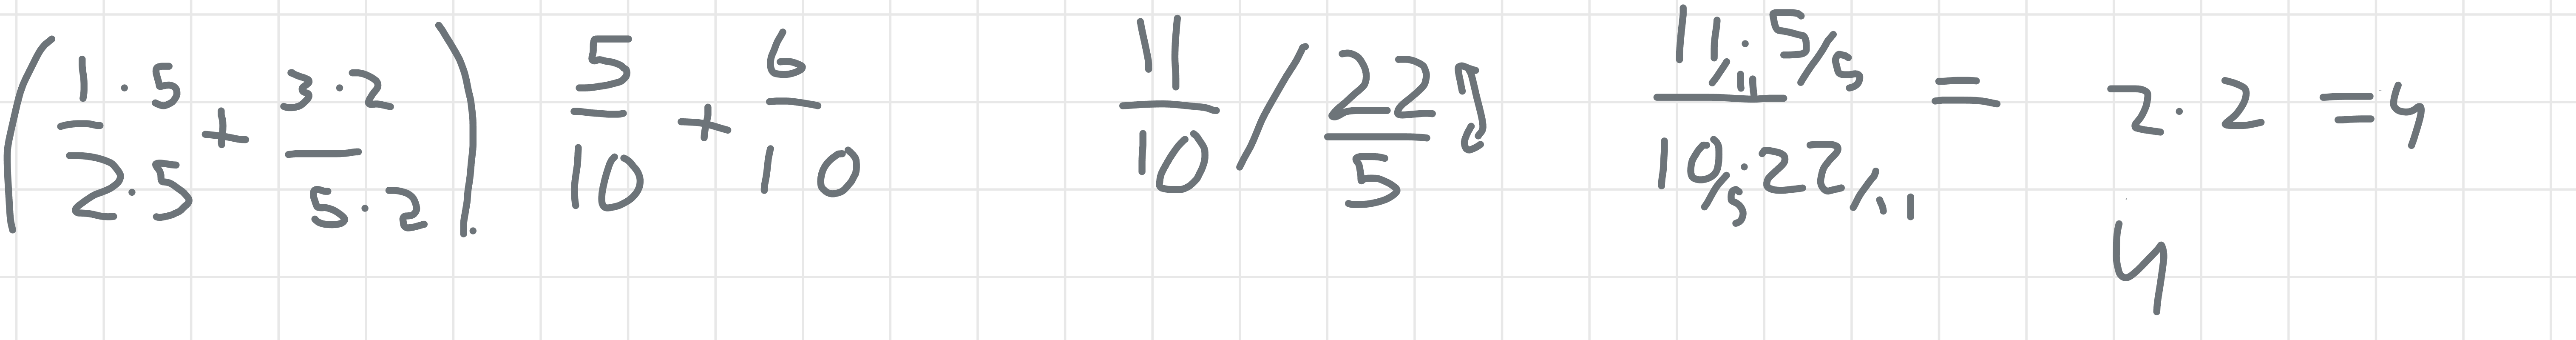 (1·5/2·5 + 3·2/5·2). 5/10 + 6/10 11/10 / 22/5 11/11·5/5 / 10/5·22/11 = 2·2 = 4
4